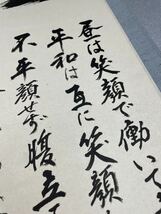 昼は笑顔で働いて
平和は互に笑顔
不平顔せず腹立て